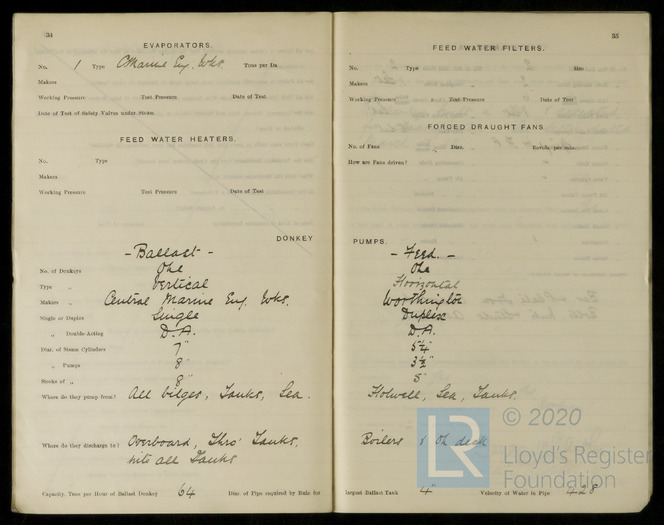 34
EVAPORATORS.
No. 1 Type C Marine Eng. Wks. Tons per Da
Makers
Working Pressure Test Pressure Date of Test
Date of Test of Safety Valves under Steam
FEED WATER HEATERS.
No. Type
Makers
Working Pressure Test Pressure Date of Test
DONKEY
- Ballast -
No. of Donkeys One
Type „ Vertical
Makers „ Central Marine Eng. Wks.
Single or Duplex Single
„ Double-Acting D.A.
Diar. of Steam Cylinders 7"
„ Pumps 8"
Stroke of „ 8"
Where do they pump from? All bilges, Tanks, Sea.
Where do they discharge to? Overboard, Thro' Tanks,
into all Tanks
Capacity, Tons per Hour of Ballast Donkey 64 Diar. of Pipe required by Rule for
35
FEED WATER FILTERS.
No. Type Size
Makers
Working Pressure Test Pressure Date of Test
FORCED DRAUGHT FANS
No. of Fans Diar. Revols. per min.
How are Fans driven?
PUMPS.
- Feed. -
One
Horizontal
Worthington
Duplex
D.A.
5¼"
3½"
5"
Hotwell, Sea, Tanks.
Boilers & On deck
largest Ballast Tank 4" Velocity of Water in Pipe 428
© 2020
LR
Lloyd's Register
Foundation